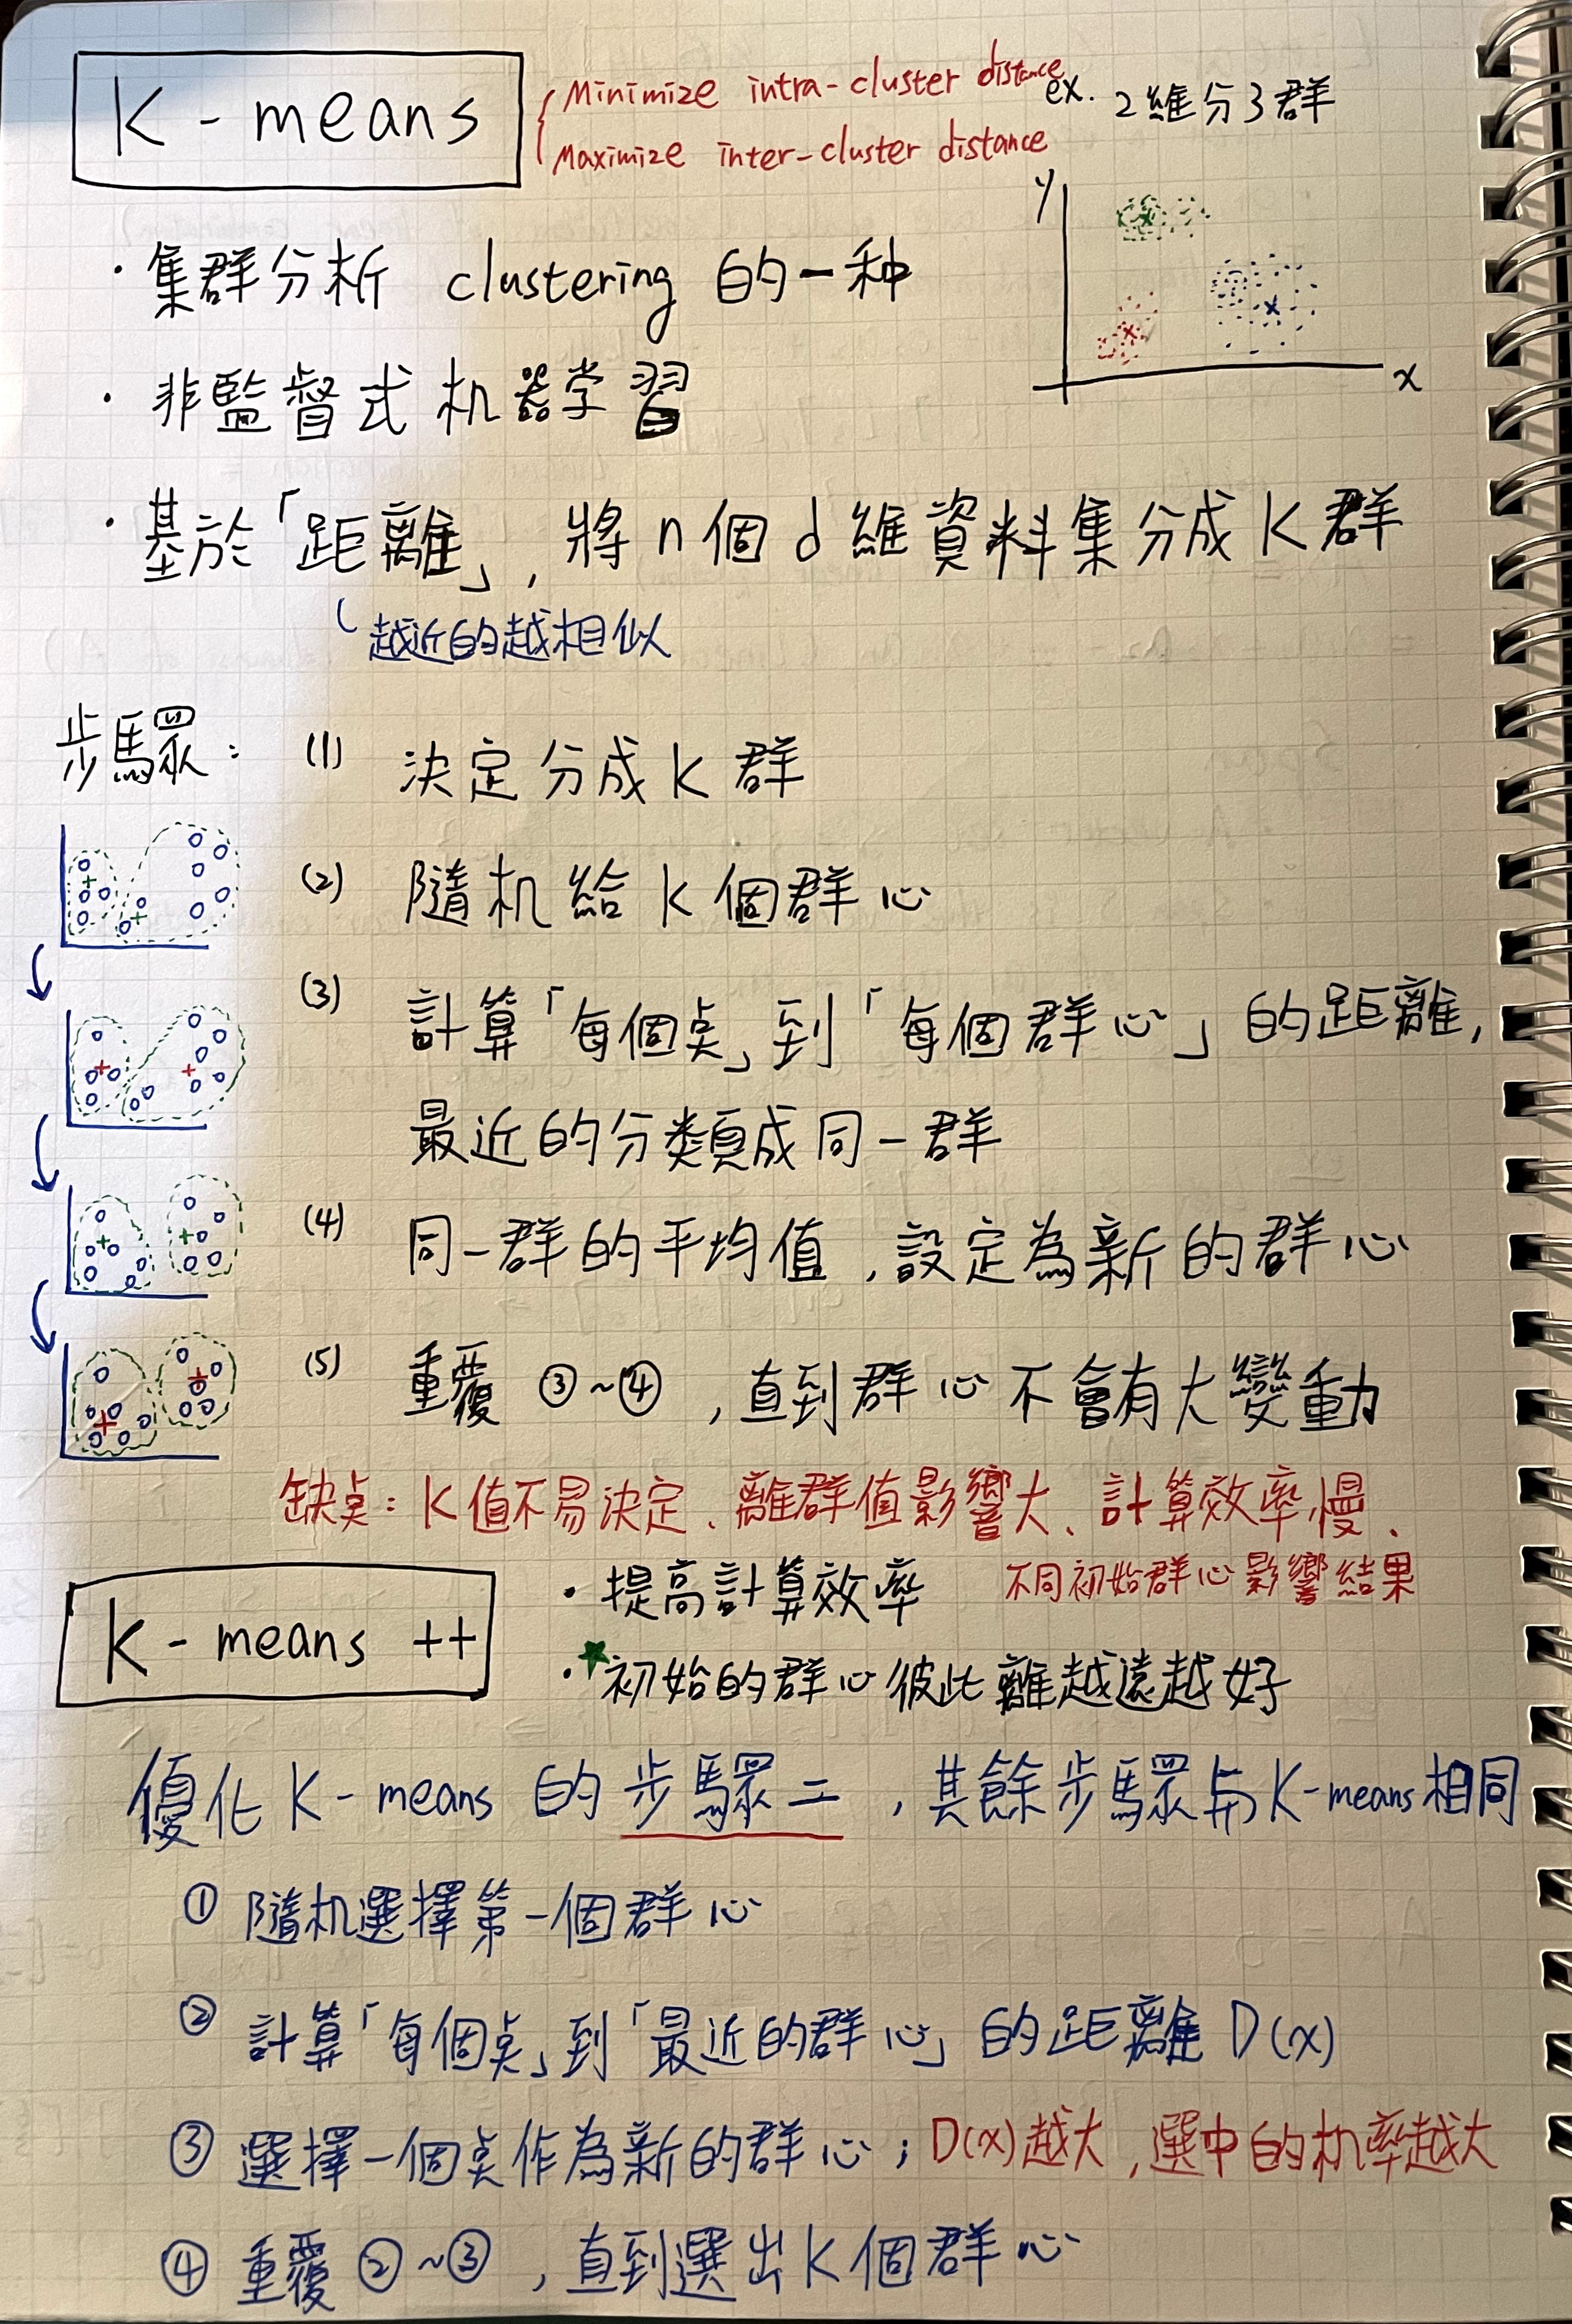 K - means
Minimize intra-cluster distance
Maximize inter-cluster distance
ex. 2維分3群
y
x
・集群分析 clustering 的一种
・非監督式机器学習
・基於「距離」, 將 n 個 d 維資料集分成 K 群
越近的越相似
步驟：
(1) 決定分成 K 群
(2) 隨机給 K 個群心
(3) 計算「每個点」到「每個群心」的距離,
最近的分類成同一群
(4) 同一群的平均值, 設定為新的群心
(5) 重覆 ③~④, 直到群心不會有大變動
缺点：K值不易決定、離群值影響大、計算效率慢、
不同初始群心影響結果
K - means ++
・提高計算效率
・★初始的群心彼此離越遠越好
優化 K-means 的步驟二, 其餘步驟与K-means相同
① 隨机選擇第一個群心
② 計算「每個点」到「最近的群心」的距離 D(x)
③ 選擇一個点作為新的群心; D(x)越大, 選中的机率越大
④ 重覆 ②~③, 直到選出K個群心